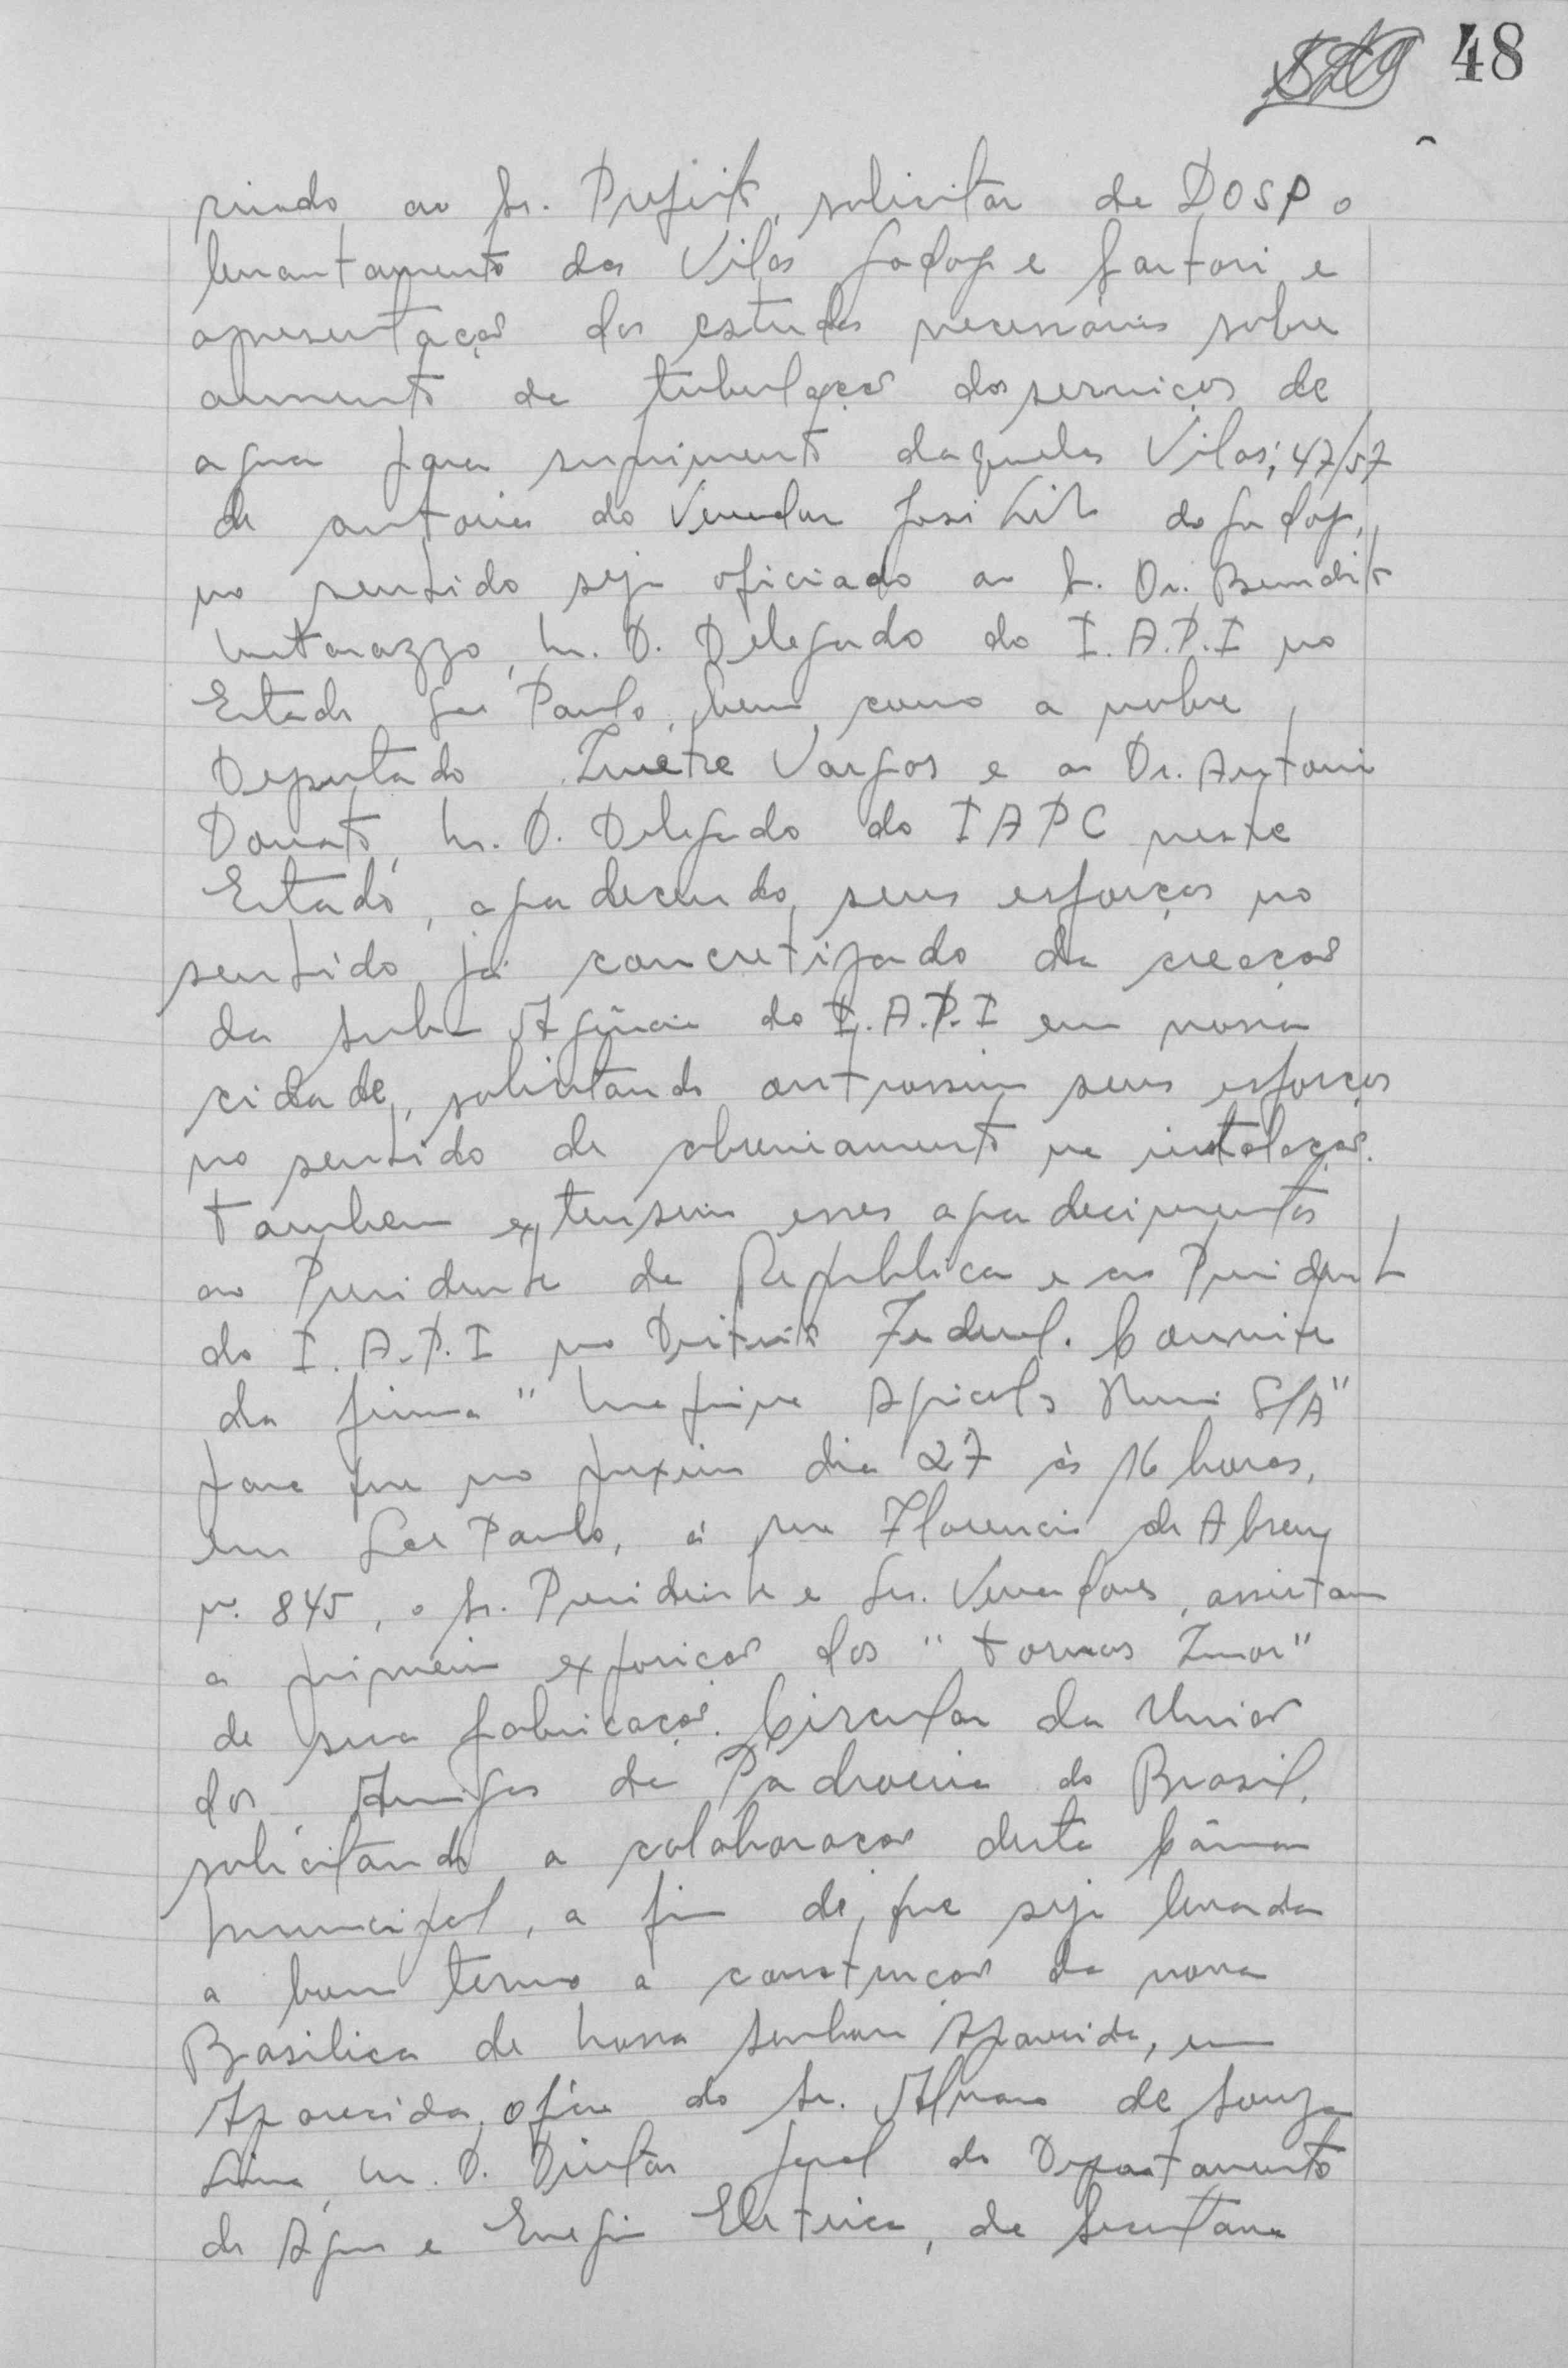 48
riindo ao Sr. Prefeito, solicitar da DOSP o
levantamento das Vilas Godoy e Sartori e
apresentação dos estudos necessários sobre
aumento da tubulação dos serviços de
agua para suprimento daquelas Vilas; 47/57
de autoria do Vereador José Lib do Godoy,
no sentido seja oficiado ao S. Dr. Benedito
Matarazzo, M. D. Delegado do I.A.P.I no
Estado São Paulo, bem como a nobre
Deputado Ivete Vargas e ao Dr. Antonio
Donato, M. D. Delegado do IAPC neste
Estado, agradecendo, seus esforços no
sentido já concretizado da creação
da Sub-Agência do I.A.P.I em nossa
cidade, solicitando outrossim seus esforços
no sentido de abreviamento na instalação.
Tambem extensivo esses agradecimentos
ao Presidente da Republica e ao Presidente
do I.A.P.I no Distrito Federal. Convite
da firma "Maquina Agricola Nemi S/A"
para que no proximo dia 27 às 16 horas,
em São Paulo, á rua Florencio de Abreu
n. 845, o Sr. Presidente e Srs. Vereadores, assistam
a primeira exposição dos "tornos Imor"
de sua fabricação. Circular da União
dos Amigos da Padroeira do Brasil,
solicitando a colaboração desta Câmara
Municipal, a fim de, que seja levada
a bom termo a construção da nova
Basilica de Nossa Senhora Aparecida, em
Aparecida, oficio do Sr. Alvaro de Souza
Lima, M. D. Diretor Geral do Departamento
de Agua e Energia Eletrica, da Secretaria